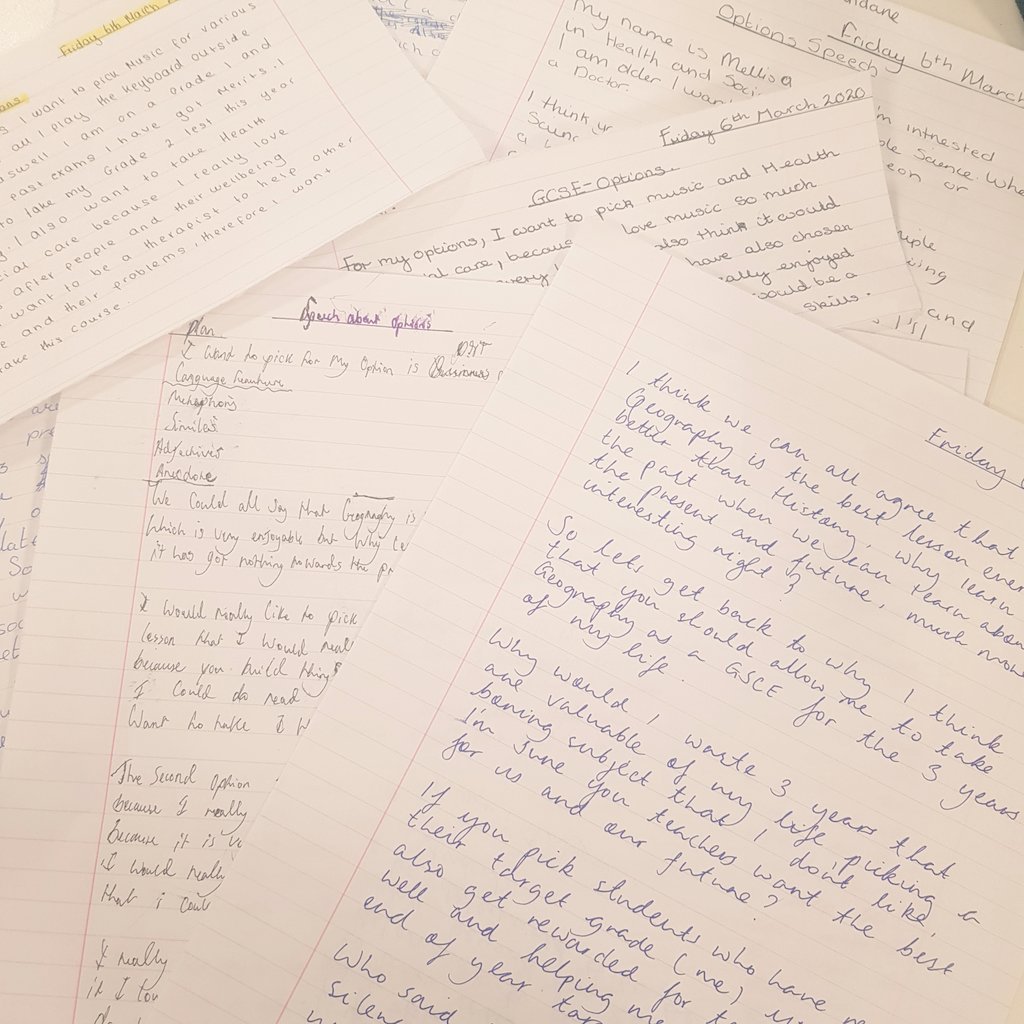 Friday 6th March
I want to pick Music for various
all I play the keyboard outside
aswell I am on a Grade 1 and
past exams I have got Merits. I
to take my Grade 2 test this year
I also want to take Health
cial care because I really love
after people and their wellbeing
want to be a therapist to help other
e and their problems, therefore I want
take this course.
My name is Mellisa
in Health and Soci
I am older I wan
a Doctor.
I think yr
Scienc
Options Speech
Friday 6th March
m intrested
ple Science. Whe
eon or
and
Friday 6th March 2020
GCSE-Options.
For my options, I want to pick music and Health
al care, because
love music so much
every
also think it would
have also chosen
ally enjoyed
would be a
skills.
Plan
Speech about options
I want to pick for my option is Bussiness
Language features
Metaphors
Similes
Adjectives
We could all say that Geography is
which is very enjoyable but why
it has got nothing towards the pr
I would really like to pick
lesson that I would reall
because you build things
I could do
Want to take I
The second option
because I really
because it is
I would really
that i coul
I really
if I
Friday
I think we can all agree that
Geography is the best lesson ever
better than History, why learn
the past when we can learn abou
the present and future, much more
interesting right?
So lets get back to why I think
that you should allow me to take
Geography as a GSCE for the 3 years
of my life.
Why would I waste 3 years that
are valuable of my life picking a
boring subject that I don't like,
I'm sure you teachers want the best
for us and our future?
If you pick students who have
their target grade (me)
also get rewarded for
well and helping me
end of year tar
Who said
silen